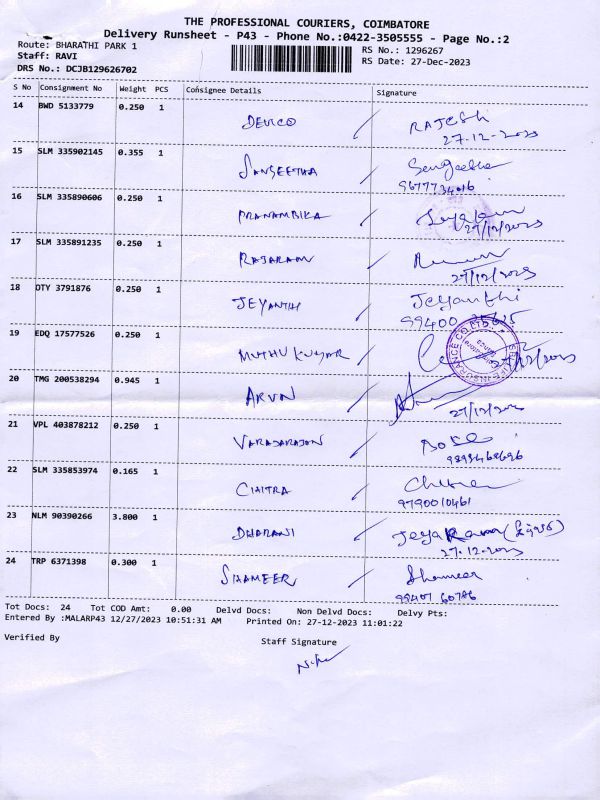 THE PROFESSIONAL COURIERS, COIMBATORE
Delivery Runsheet - P43 - Phone No.:0422-3505555 - Page No.:2
Route: BHARATHI PARK 1 RS No.: 1296267
Staff: RAVI RS Date: 27-Dec-2023
DRS No.: DCJB129626702
S No Consignment No Weight PCS Consignee Details Signature
14 BWD 5133779 0.250 1
DEUCO RAJESH
27.12-2023
15 SLM 335902145 0.355 1
SANGEETHA Sangeetha
9677734016
16 SLM 335890606 0.250 1
PRANAMBIKA
27/12/2023
17 SLM 335891235 0.250 1
RAJARAM
27/12/2023
18 DTY 3791876 0.250 1
JEYANTHI Jeyanthi
99400
19 EDQ 17577526 0.250 1
MUTHU KUMAR 27/12/2023
20 TMG 200538294 0.945 1
ARUN
27/12/2023
21 VPL 403878212 0.250 1
VARADARAJAN
22 SLM 335853974 0.165 1
CHITRA
9790010461
23 NLM 90390266 3.800 1
DHARANI Jeya
27.12.2023
24 TRP 6371398 0.300 1
SHAMEER Shameer
99407 60786
Tot Docs: 24 Tot COD Amt: 0.00 Delvd Docs: Non Delvd Docs: Delvy Pts:
Entered By :MALARP43 12/27/2023 10:51:31 AM Printed On: 27-12-2023 11:01:22
Verified By Staff Signature